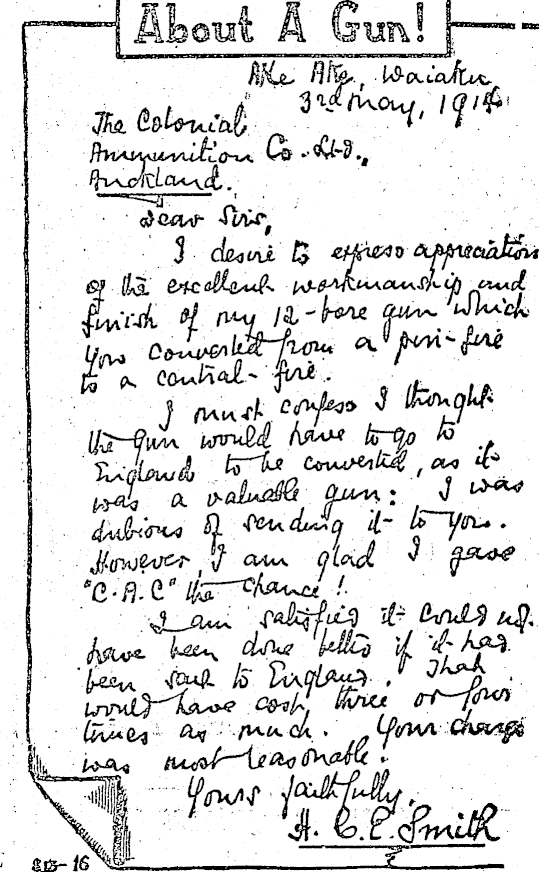 About A Gun!
Ake Ake, Waiaku
3rd May, 1914
The Colonial
Ammunition Co. Ltd.,
Auckland.
Dear Sirs,
I desire to express appreciation
of the excellent workmanship and
finish of my 12-bore gun which
you converted from a pin-fire
to a central-fire.
I must confess I thought
the gun would have to go to
England to be converted, as it
was a valuable gun: I was
dubious of sending it to you.
However, I am glad I gave
"C.A.C" the chance!
I am satisfied it could not
have been done better if it had
been sent to England. That
would have cost three or four
times as much. Your charge
was most reasonable.
Yours faithfully,
H. C. E. Smith